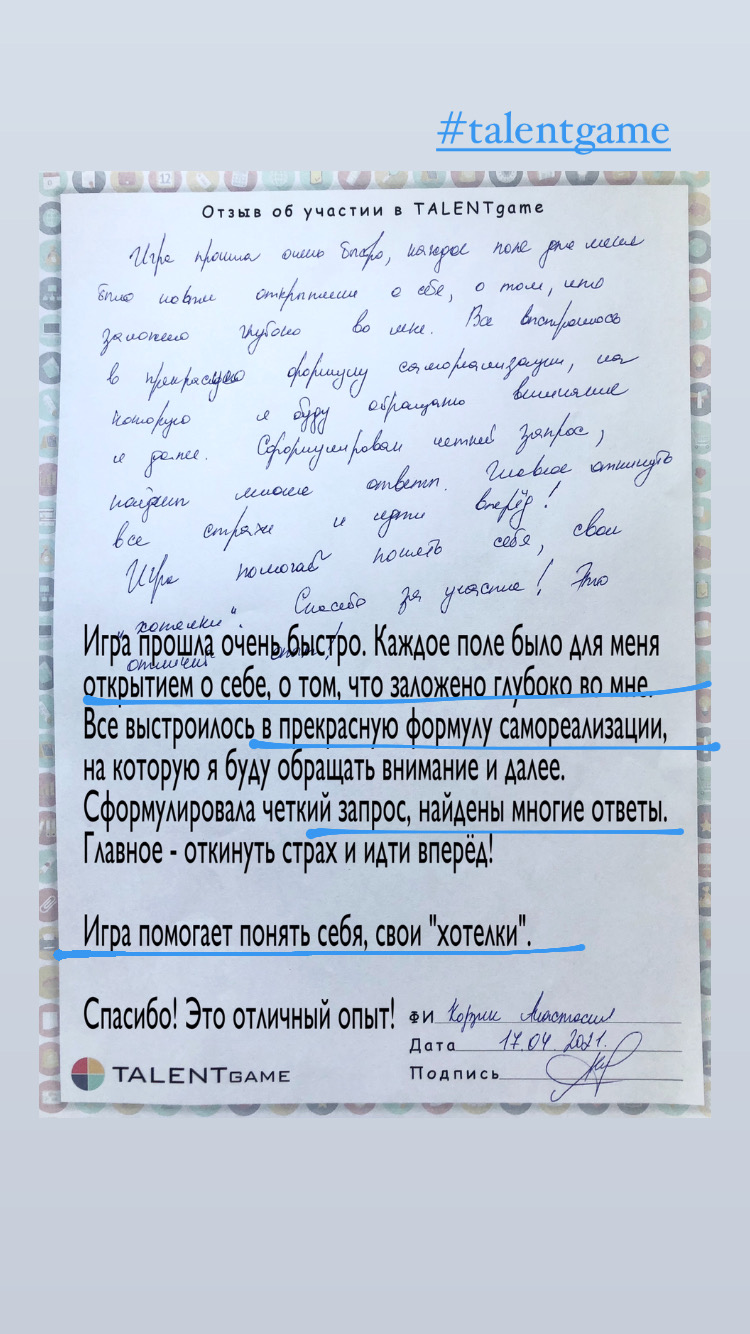 #talentgame
Отзыв об участии в TALENTgame
Игра прошла очень быстро, каждое поле для меня
было новым открытием о себе, о том, что
заложено глубоко во мне. Все выстроилось
в прекрасную формулу самореализации, на
которую я буду обращать внимание
и далее. Сформулирован четкий запрос,
найдены многие ответы. Главное откинуть
все страхи и идти вперёд!
Игра помогает понять себя, свои
"хотелки". Спасибо за участие! Это
отличный опыт!
Игра прошла очень быстро. Каждое поле было для меня
открытием о себе, о том, что заложено глубоко во мне.
Все выстроилось в прекрасную формулу самореализации,
на которую я буду обращать внимание и далее.
Сформулировала четкий запрос, найдены многие ответы.
Главное - откинуть страх и идти вперёд!
Игра помогает понять себя, свои "хотелки".
Спасибо! Это отличный опыт!
ФИ Корзик Анастасия
Дата 17.04.2021.
Подпись
TALENTGAME